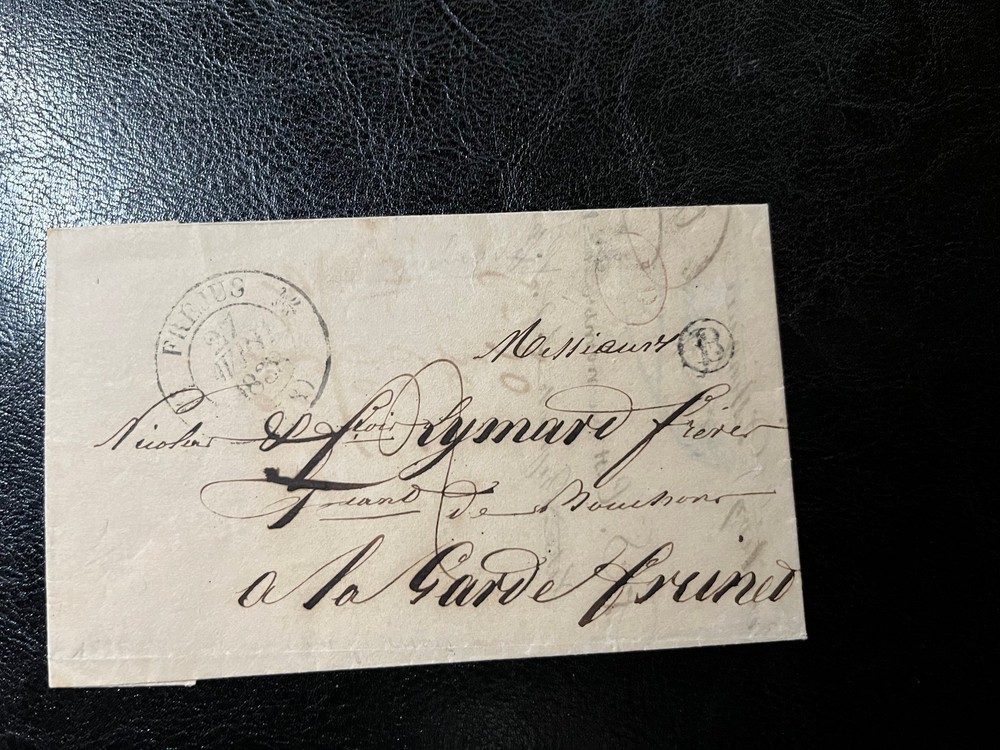 FREJUS
27
Messieurs
B
Nicolas & fçois Eymard frères
de Bouchons
a la Garde freinet